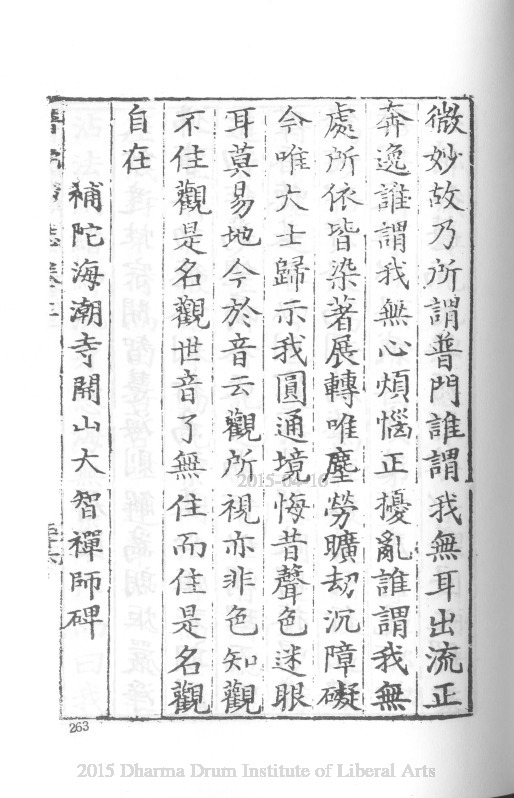 微妙故乃所謂普門誰謂我無耳出流正
奔逸誰謂我無心煩惱正擾亂誰謂我無
處所依皆染著展轉唯塵勞曠劫沉障礙
今唯大士歸示我圓通境悔昔聲色迷眼
耳莫易地今於音云觀所視亦非色知觀
不住觀是名觀世音了無住而住是名觀
自在
補陀海潮寺開山大智禪師碑
263
2015-04-10
2015 Dharma Drum Institute of Liberal Arts